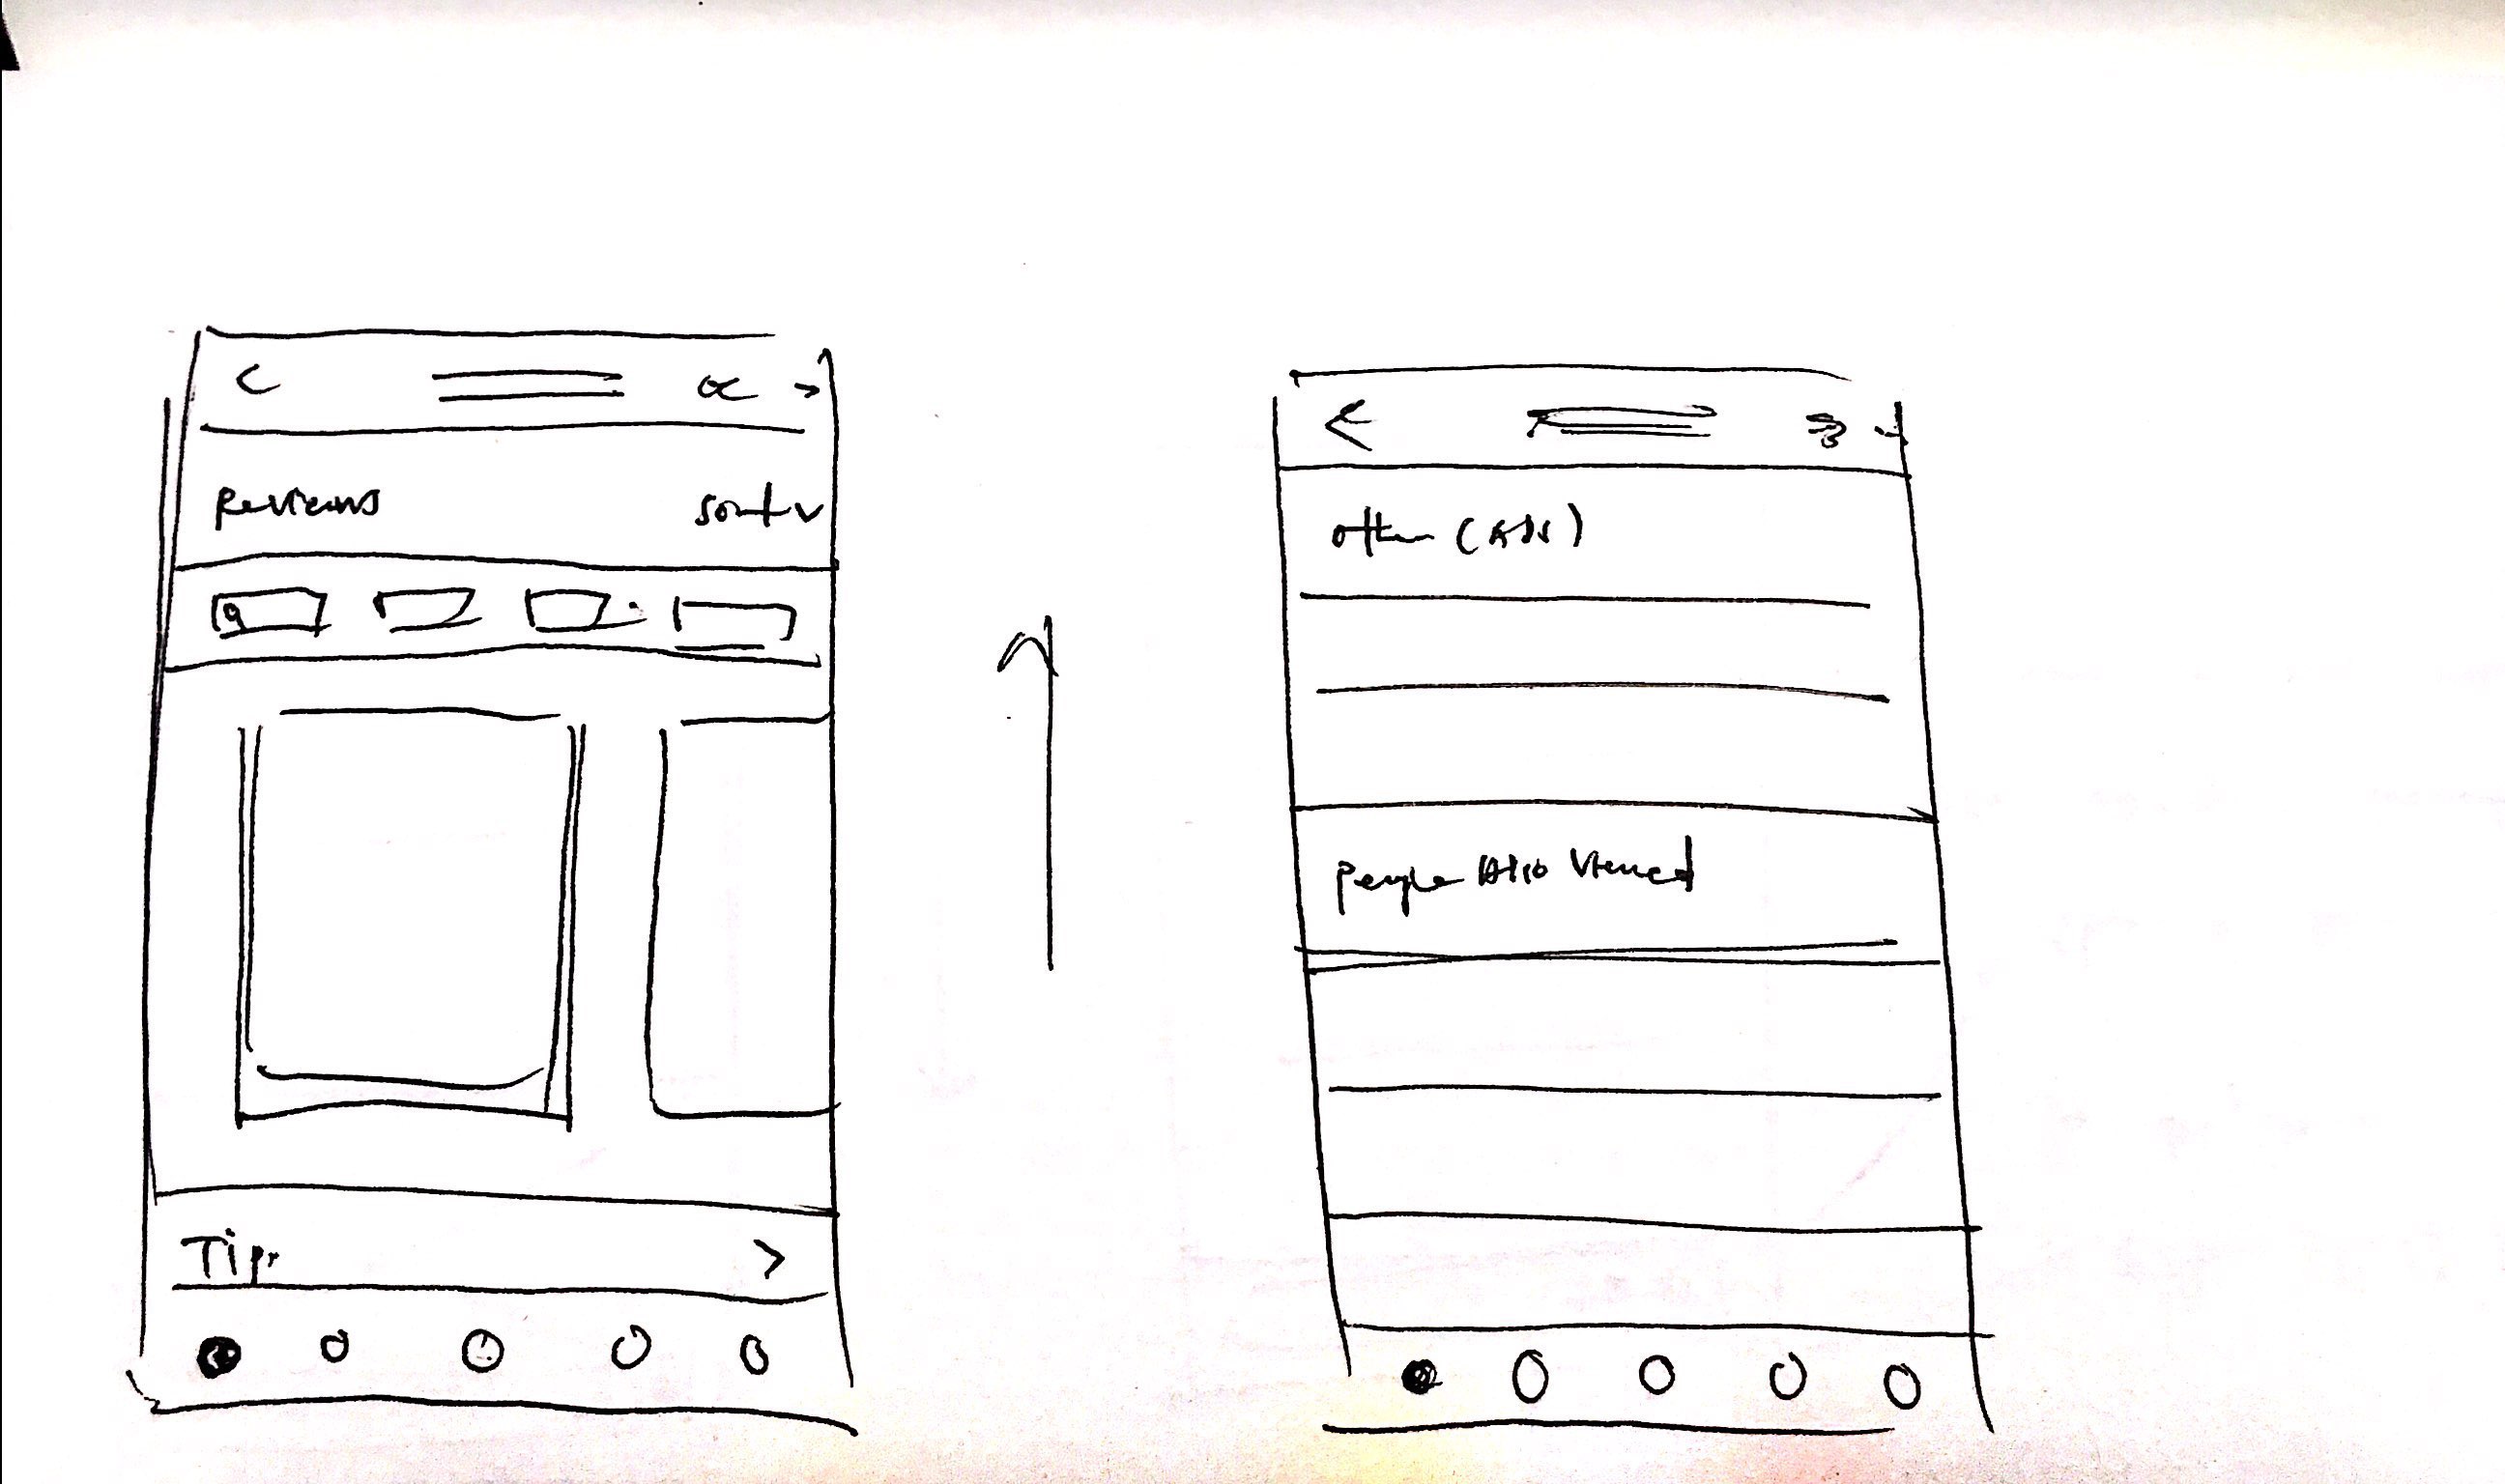 Reviews
Sort v
Tips >
Other (Ads)
People Also Viewed